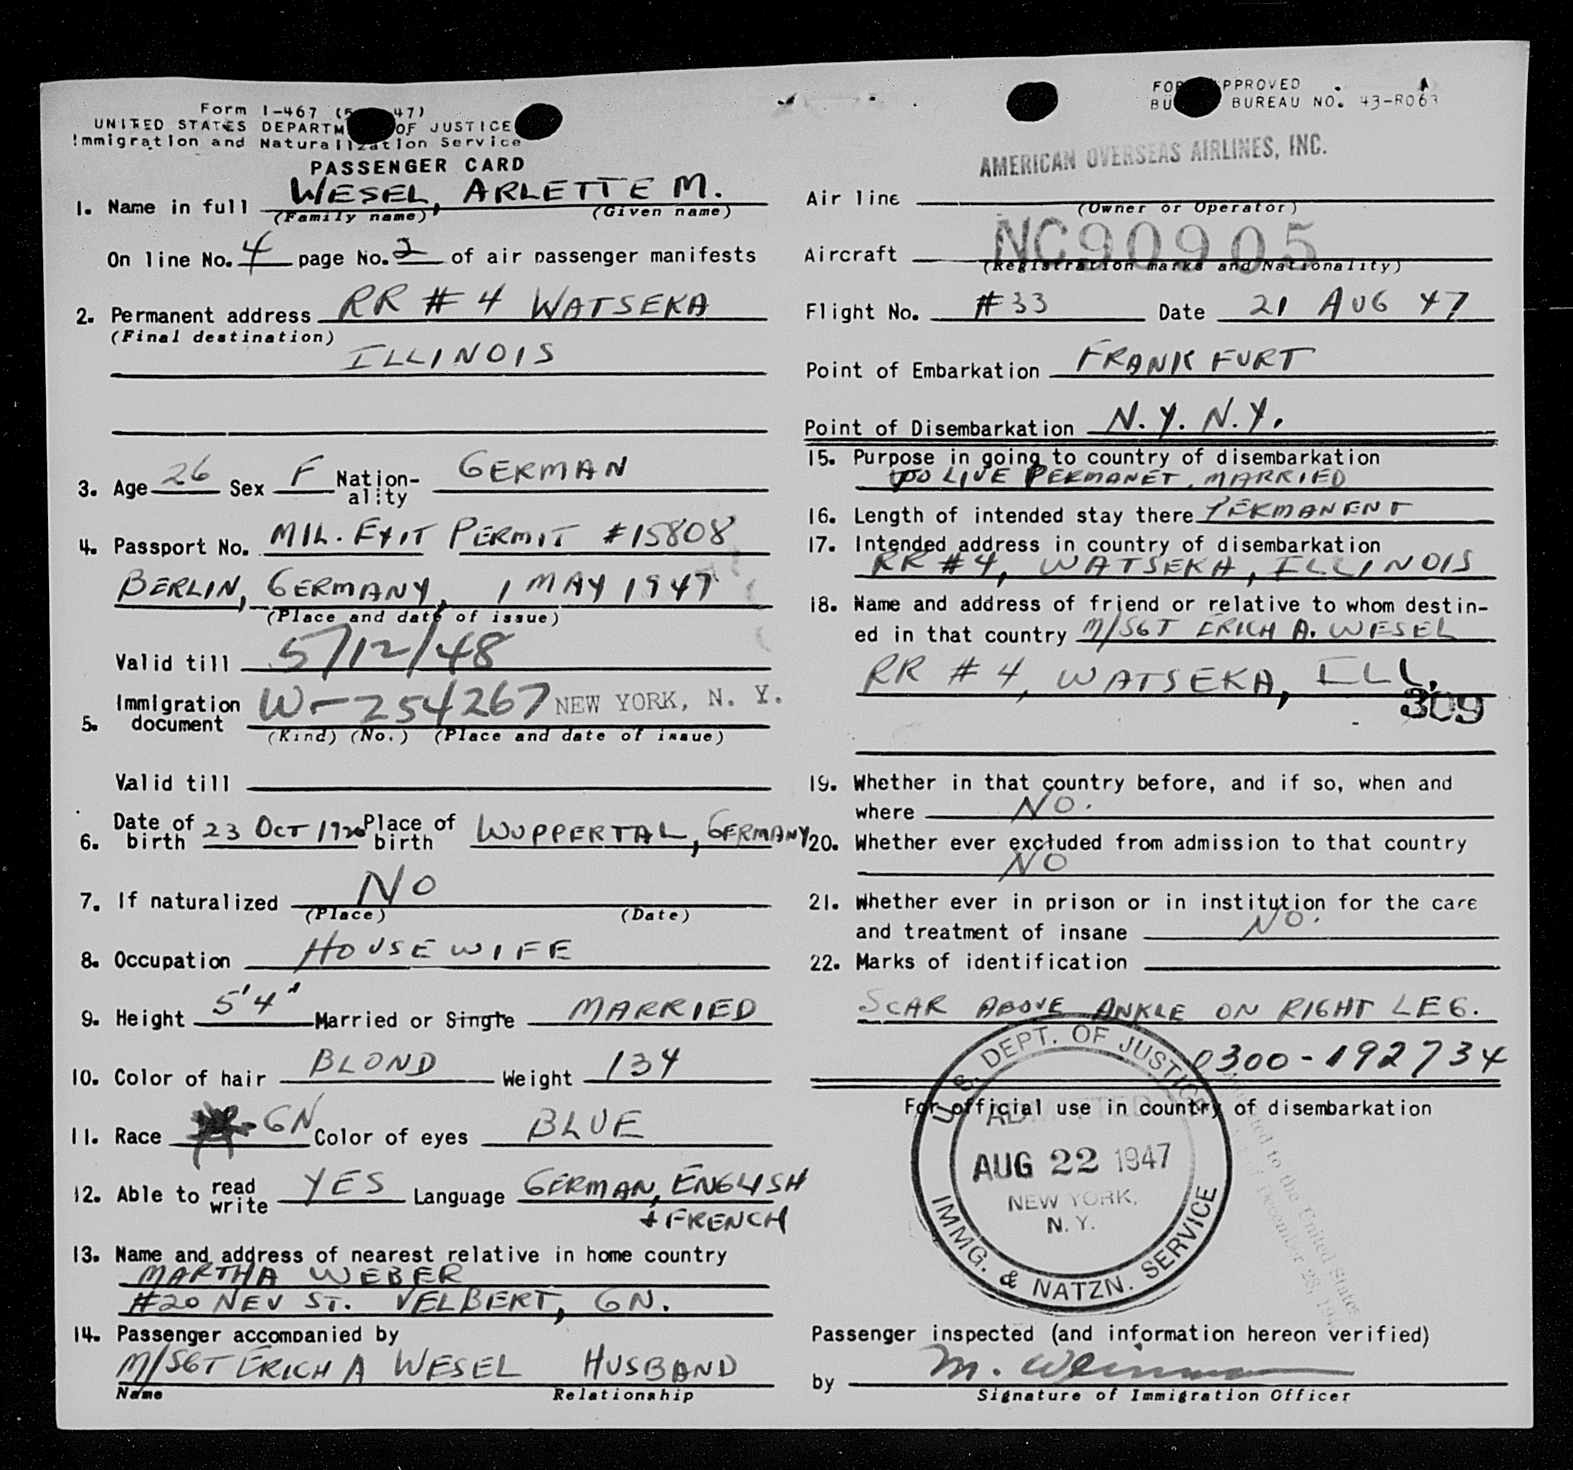 Form I-467 (5 47)
UNITED STATES DEPARTM OF JUSTICE
Immigration and Naturalization Service
PASSENGER CARD
1. Name in full WESEL, ARLETTE M.
(Family name) (Given name)
On line No. 4 page No. 2 of air passenger manifests
2. Permanent address RR # 4 WATSEKA
(Final destination)
ILLINOIS
3. Age 26 Sex F Nation-ality GERMAN
4. Passport No. MIL. EXIT PERMIT #15808
BERLIN, GERMANY, 1 MAY 1947
(Place and date of issue)
Valid till 5/12/48
5. Immigration document W-254267 NEW YORK, N. Y.
(Kind) (No.) (Place and date of issue)
Valid till
6. Date of birth 23 OCT 1920 Place of birth WUPPERTAL, GERMANY
7. If naturalized NO
(Place) (Date)
8. Occupation HOUSEWIFE
9. Height 5'4" Married or Single MARRIED
10. Color of hair BLOND Weight 134
11. Race GN Color of eyes BLUE
12. Able to read write YES Language GERMAN, ENGLISH
+ FRENCH
13. Name and address of nearest relative in home country
MARTHA WEBER
#20 NEV ST. VELBERT, GN.
14. Passenger accompanied by
M/SGT ERICH A WESEL HUSBAND
Name Relationship
FOR APPROVED
BU BUREAU NO. 43-R063
AMERICAN OVERSEAS AIRLINES, INC.
Air line
(Owner or Operator)
Aircraft NC90905
(Registration marks and Nationality)
Flight No. #33 Date 21 AUG 47
Point of Embarkation FRANKFURT
Point of Disembarkation N.Y. N.Y.
15. Purpose in going to country of disembarkation
TO LIVE PERMANET, MARRIED
16. Length of intended stay there PERMANENT
17. Intended address in country of disembarkation
RR #4, WATSEKA, ILLINOIS
18. Name and address of friend or relative to whom destin-
ed in that country M/SGT ERICH A. WESEL
RR # 4, WATSEKA, ILL.
309
19. Whether in that country before, and if so, when and
where NO.
20. Whether ever excluded from admission to that country
NO
21. Whether ever in prison or in institution for the care
and treatment of insane NO.
22. Marks of identification
SCAR ABOVE ANKLE ON RIGHT LEG.
0300-192734
For official use in country of disembarkation
U. S. DEPT. OF JUSTICE
ADMITTED
AUG 22 1947
NEW YORK,
N. Y.
IMMG. & NATZN. SERVICE
to the United States
December 28, 19
Passenger inspected (and information hereon verified)
by M.
Signature of Immigration Officer